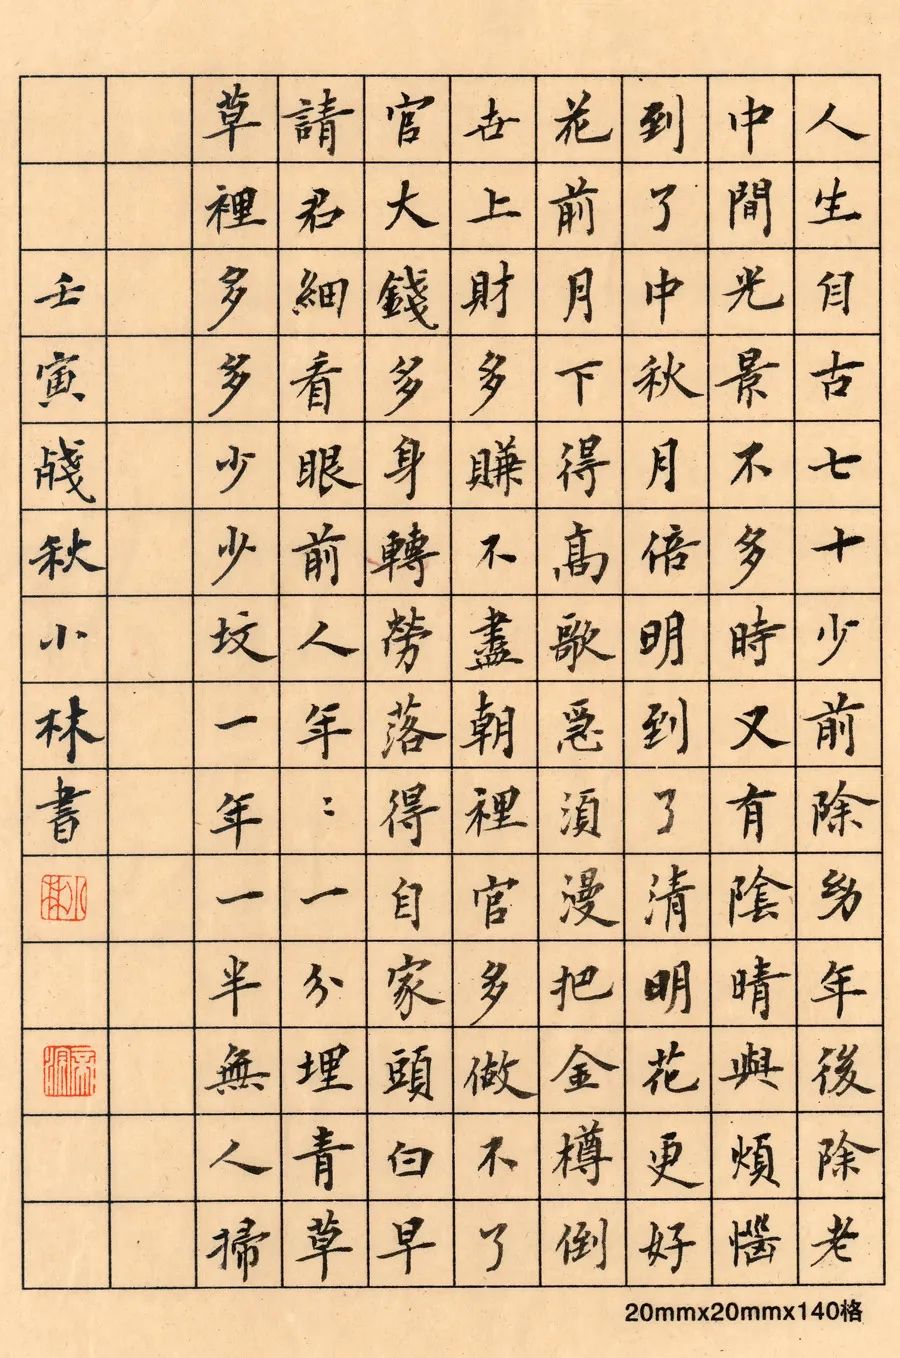 人生自古七十少前除幼年後除老
中間光景不多時又有陰晴與煩惱
到了中秋月倍明到了清明花更好
花前月下得高歌急須漫把金樽倒
世上財多賺不盡朝裡官多做不了
官大錢多身轉勞落得自家頭白早
請君細看眼前人年：一分埋青草
草裡多多少少坟一年一半無人掃
壬寅残秋小林書
20mmx20mmx140格